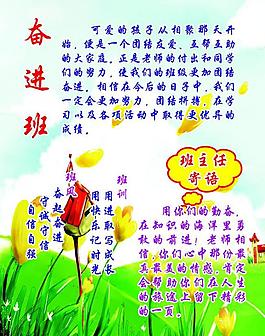 奋进班
可爱的孩子从相聚那天开
始，便是一个团结友爱、互帮互助
的大家庭，正是老师的付出和同学
们的努力，使我们的班级更加团结
奋进。相信在今后的日子中，我们
一定会更加努力，团结拼搏，在学
习以及各项活动中取得更优异的
成绩。
班训
用进取写成长
用快乐记时光
班风
奋起奋进
守诚守信
自信自强
班主任
寄语
用你们的勤奋，
在知识的海洋里勇
敢的前进！老师相
信，你们心中那份最
真最美的情感，肯定
会帮助你们在人生
的旅途上留下精彩
的一页。